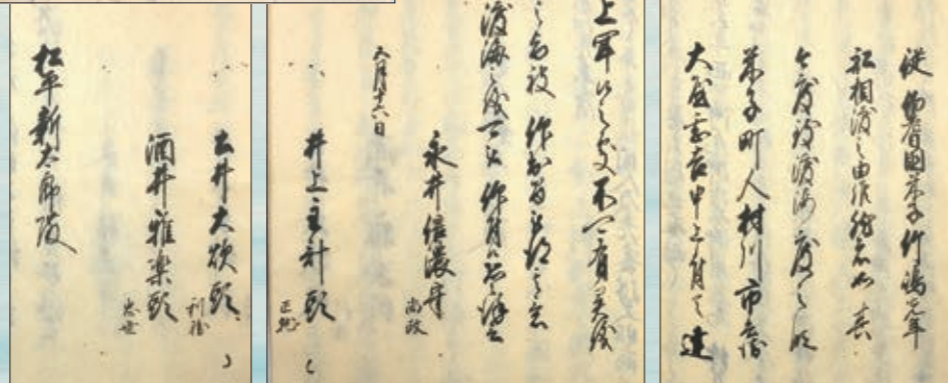 従伯耆国米子竹嶋先年
船相渡之由候然者如其
今度致渡海度之段
米子町人村川市兵衛
大屋甚吉申上付而達
上聞候之処不可有異儀
之旨被仰出候間被得其意
渡海之儀可被仰付候恐々謹言
永井信濃守
尚政
五月十六日
井上主計頭
正就
土井大炊頭
利勝
酒井雅楽頭
忠世
松平新太郎殿